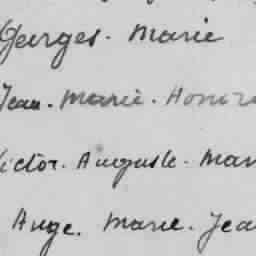 Georges. Marie
Jean. Marie. Honor
Victor. Auguste. Mar
Ange. Marie. Jea